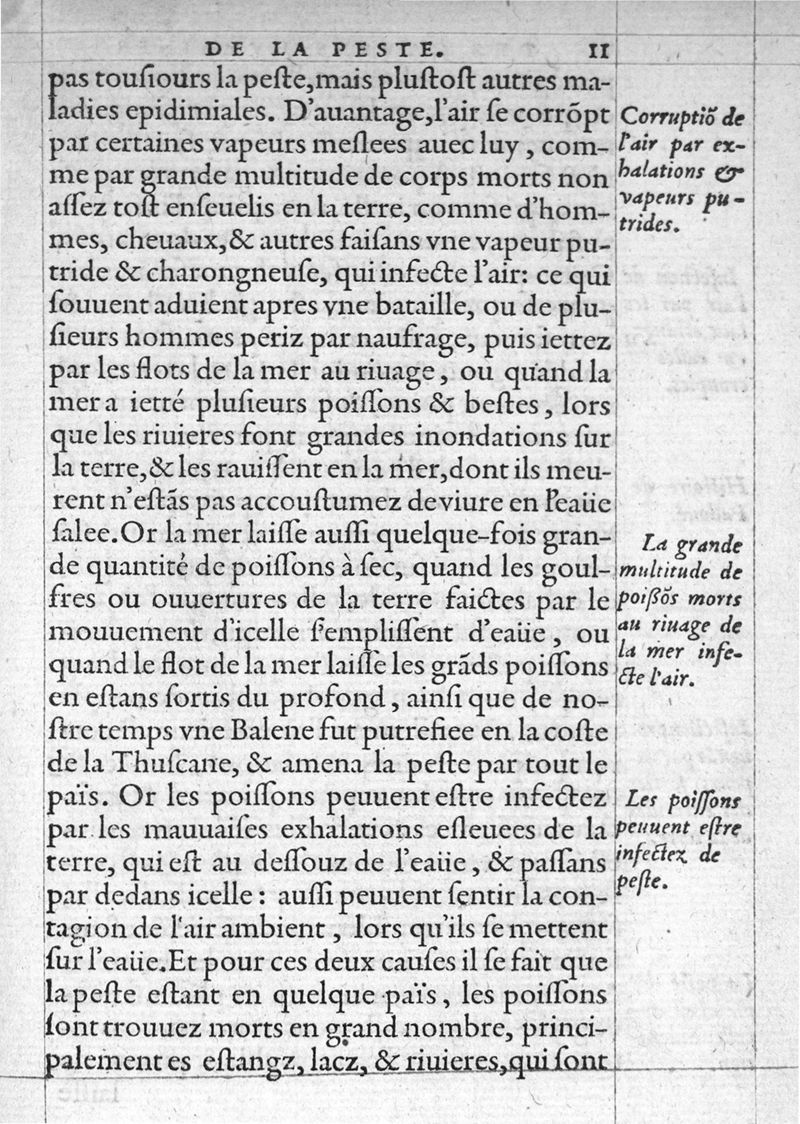 DE LA PESTE. 11
pas tousiours la peste,mais plustost autres ma-
ladies epidimiales. D'auantage,l'air se corrõpt
par certaines vapeurs meslees auec luy, com-
me par grande multitude de corps morts non
assez tost enseuelis en la terre, comme d'hom-
mes, cheuaux,& autres faisans vne vapeur pu-
tride & charongneuse, qui infecte l'air: ce qui
souuent aduient apres vne bataille, ou de plu-
sieurs hommes periz par naufrage, puis iettez
par les flots de la mer au riuage, ou quand la
mer a ietté plusieurs poissons & bestes, lors
que les riuieres font grandes inondations sur
la terre,& les rauissent en la mer,dont ils meu-
rent n'estãs pas accoustumez de viure en l'eaüe
salee. Or la mer laisse aussi quelque-fois gran-
de quantité de poissons à sec, quand les goul-
fres ou ouuertures de la terre faictes par le
mouuement d'icelle s'emplissent d'eaüe, ou
quand le flot de la mer laisse les grãds poissons
en estans sortis du profond, ainsi que de no-
stre temps vne Balene fut putrefiee en la coste
de la Thuscane, & amena la peste par tout le
païs. Or les poissons peuuent estre infectez
par les mauuaises exhalations esleuees de la
terre, qui est au dessouz de l'eaüe, & passans
par dedans icelle: aussi peuuent sentir la con-
tagion de l'air ambient, lors qu'ils se mettent
sur l'eaüe. Et pour ces deux causes il se fait que
la peste estant en quelque païs, les poissons
sont trouuez morts en grand nombre, princi-
palement es estangz, lacz, & riuieres,qui sont
Corruptiõ de
l'air par ex-
halations &
vapeurs pu-
trides.
La grande
multitude de
poissõs morts
au riuage de
la mer infe-
cte l'air.
Les poissons
peuuent estre
infectez de
peste.